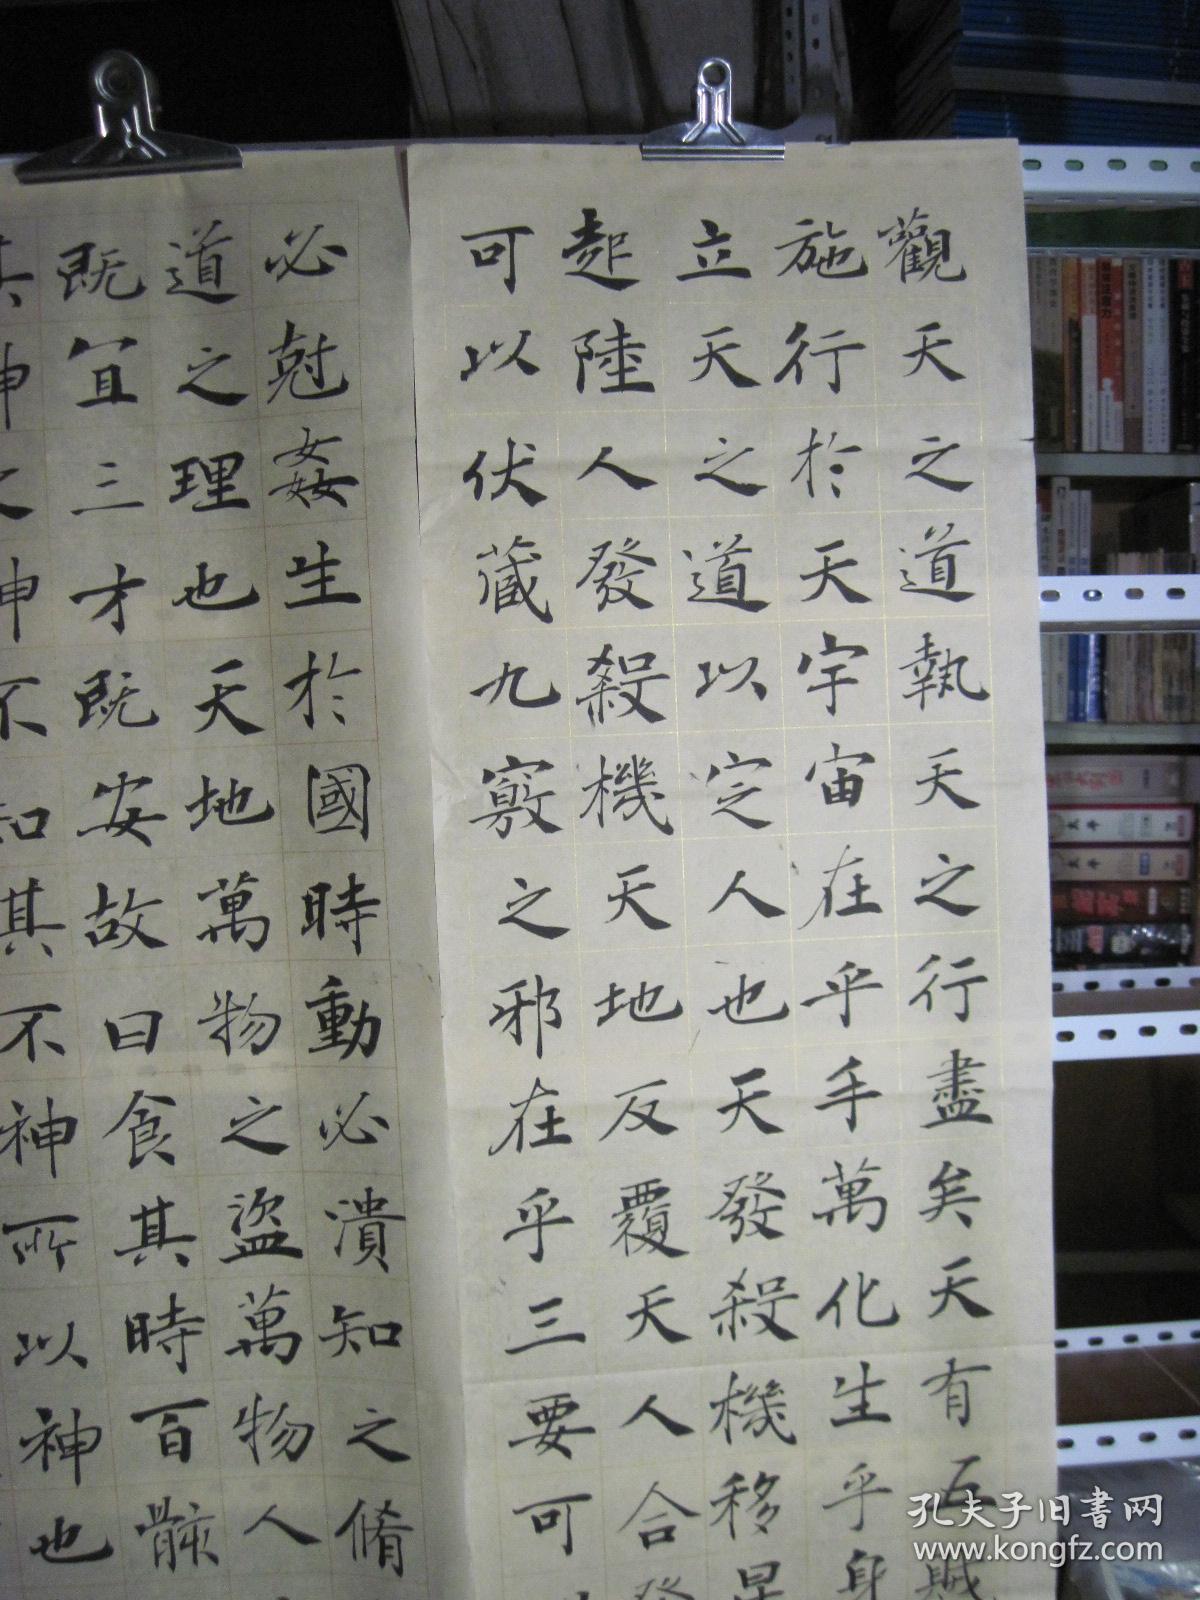 觀天之道執天之行盡矣天有五賊
施行於天宇宙在乎手萬化生乎身
立天之道以定人也天發殺機移星
起陸人發殺機天地反覆天人合發
可以伏藏九竅之邪在乎三要可
必尅姦生於國時動必潰知之脩
道之理也天地萬物之盜萬物人
既宜三才既安故曰食其時百骸
其神之神不知其不神所以神也
孔夫子旧书网
www.kongfz.com